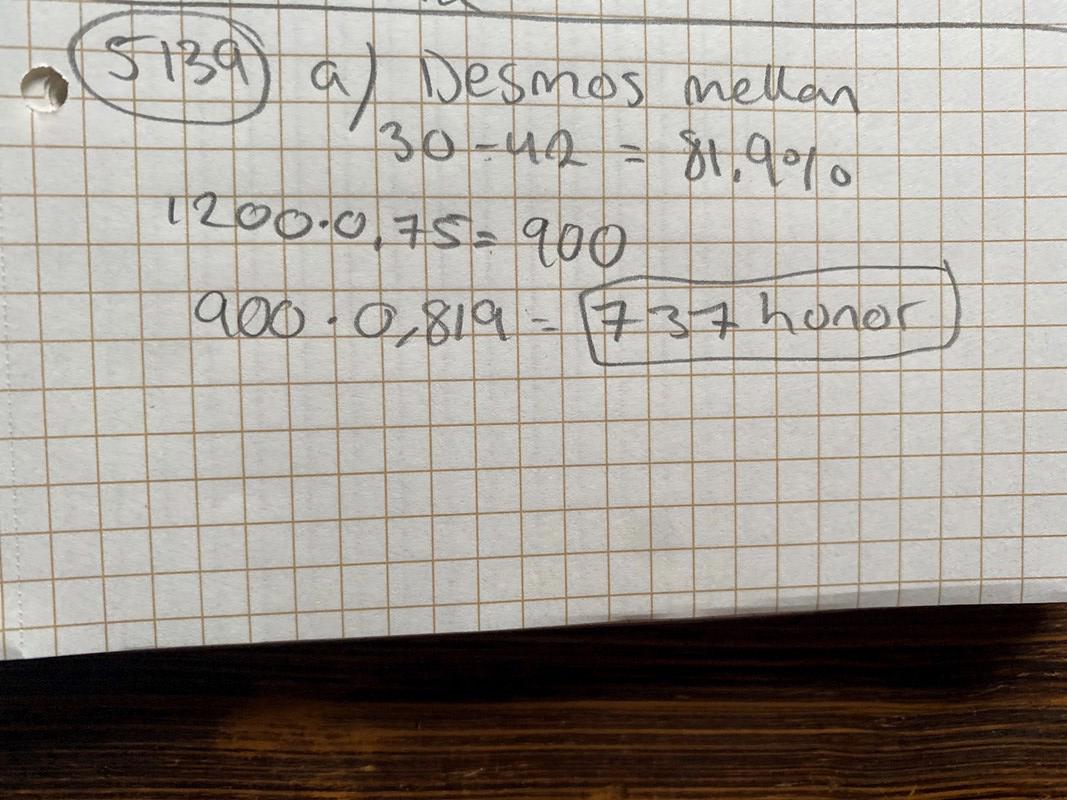 5139 a) Desmos mellan
30-42 = 81,9%
1200·0,75= 900
900 · 0,819 = 737 honor